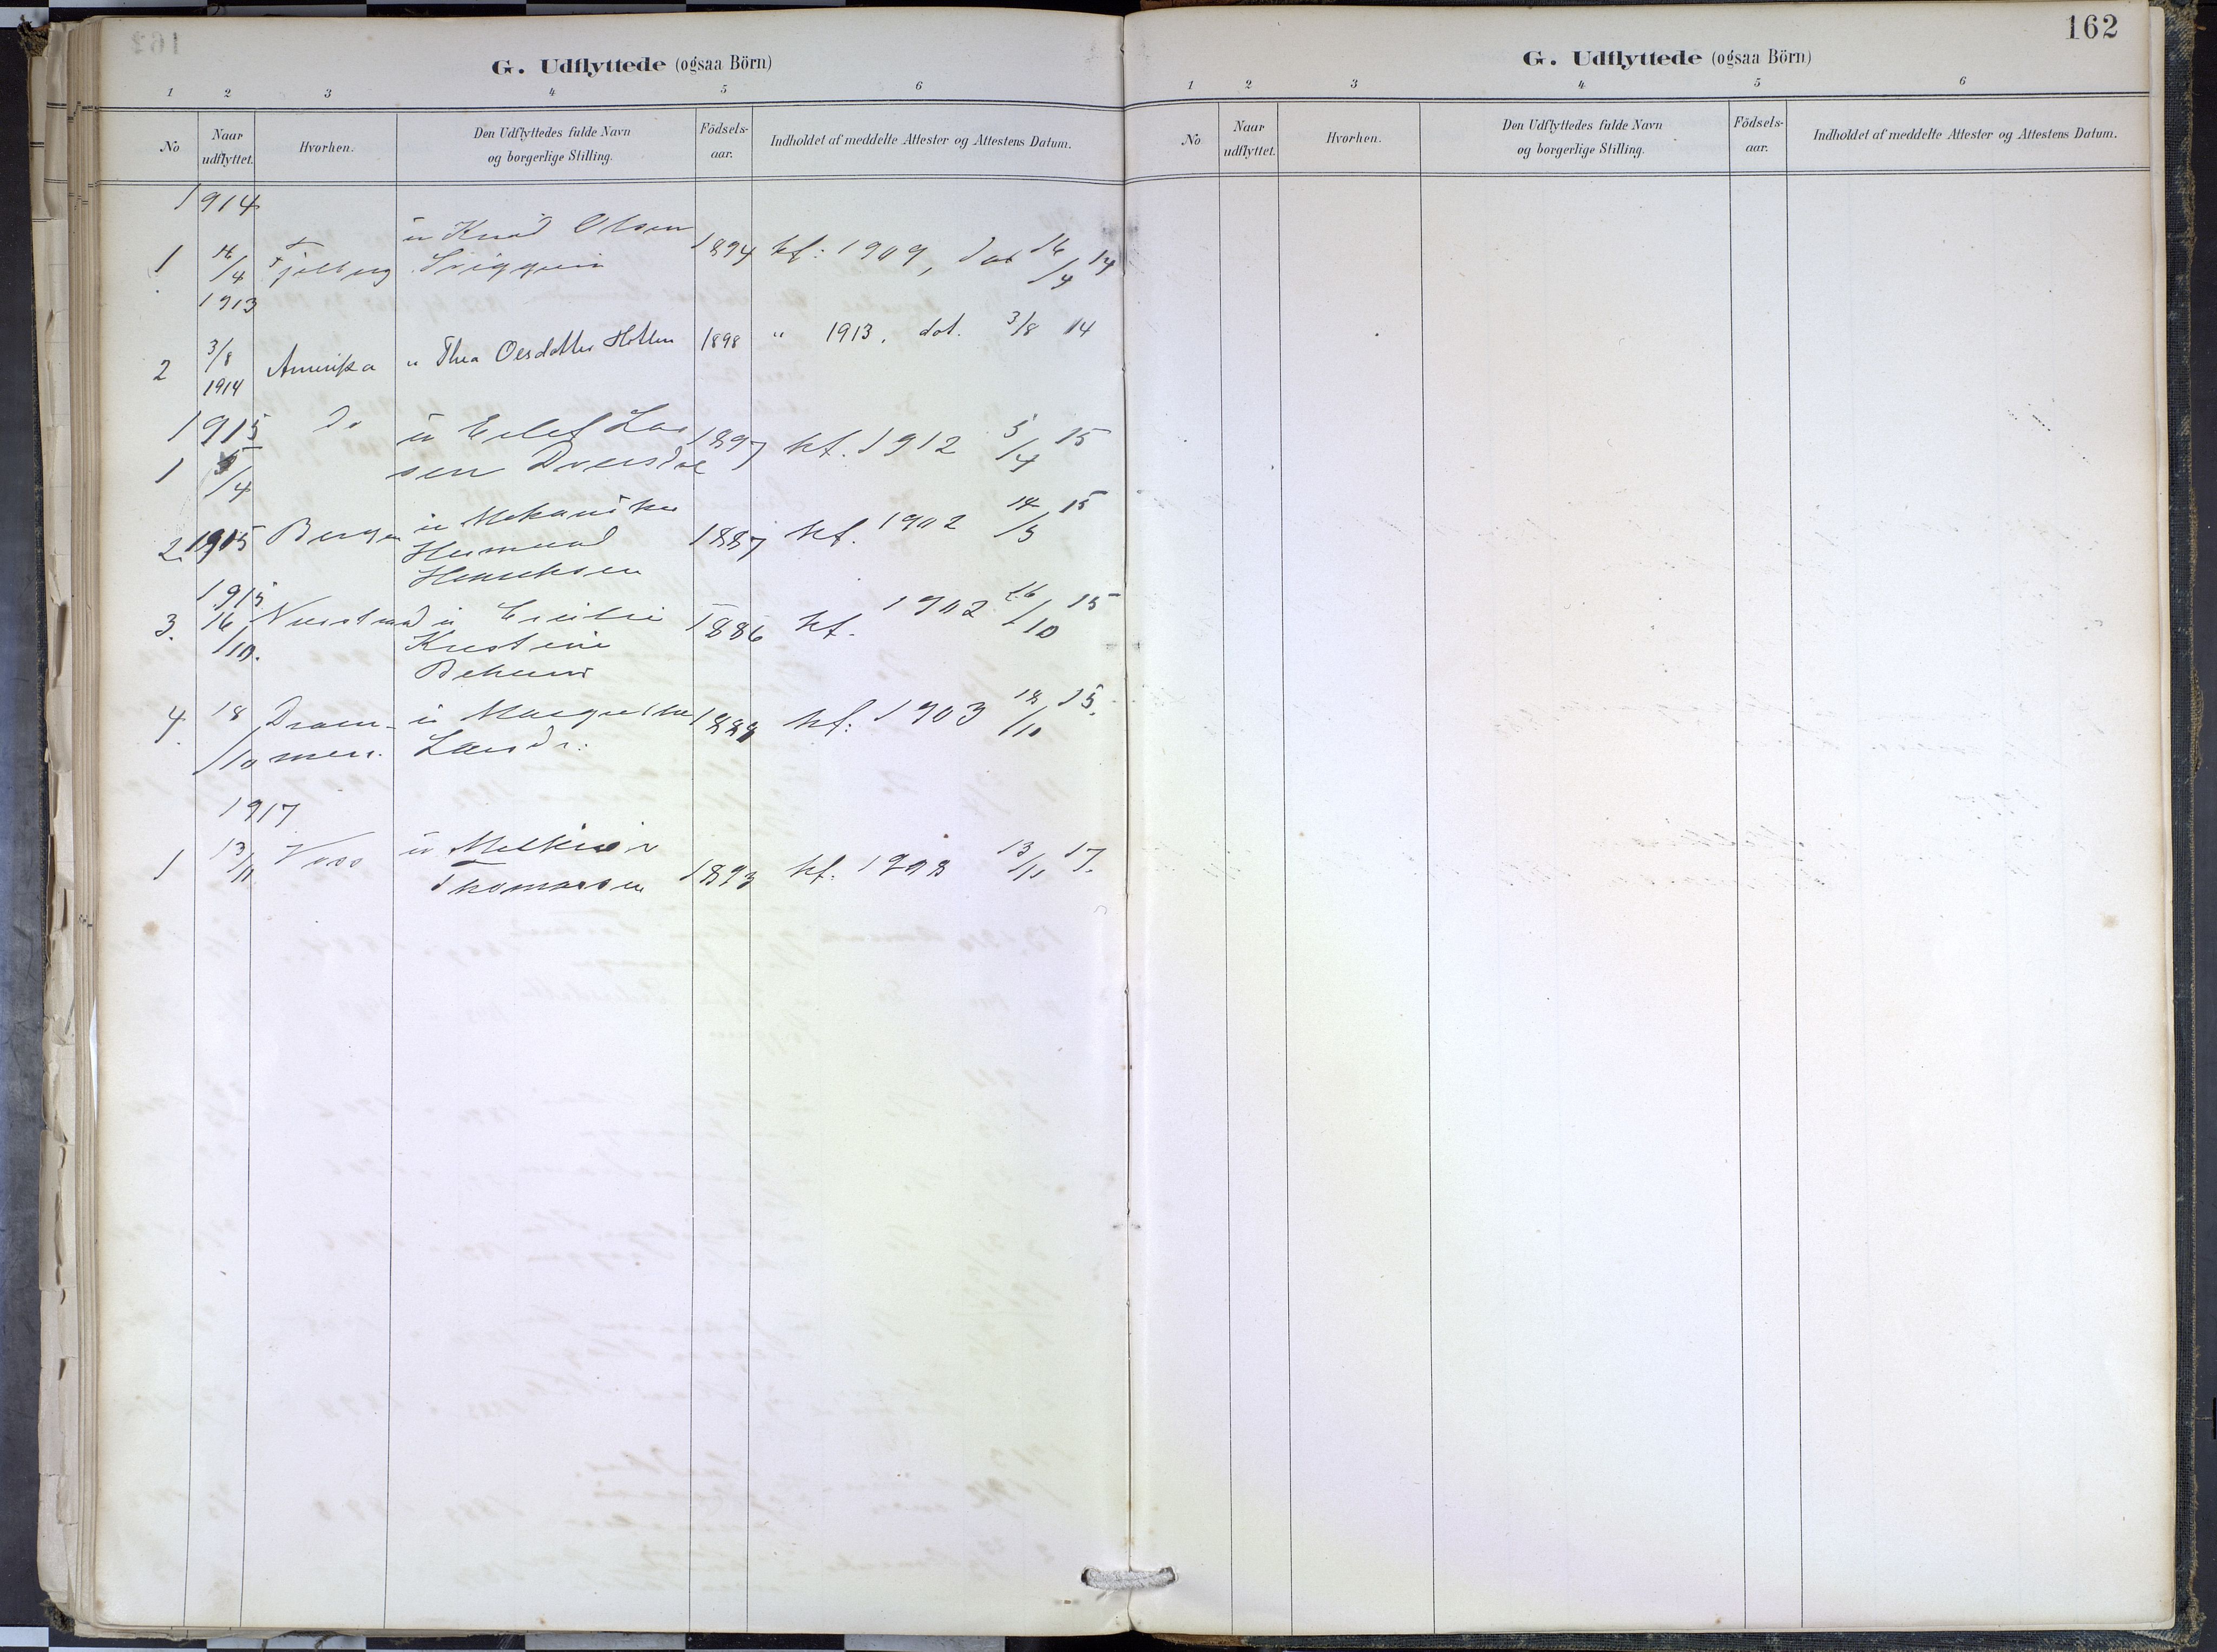 G. Udflyttede (ogsaa Börn)
1 2 3 4 5 6
No
Naar udflyttet.
Hvorhen.
Den Udflyttedes fulde Navn og borgerlige Stilling.
Födsels-aar.
Indholdet af meddelte Attester og Attestens Datum.
1914
u Knud Olsen
1 16/4 Fjelberg 1894 kf: 1909, dat 16/4 14
1913
2 3/8 Amerika " Thea Olsdatter 1898 " 1913. dat. 3/8 14
1914
1915 Do u Eilef Lar 1897 kf. 1912 5/4 15
1 5/4 sen
2. 1915 Bergen u Mekaniker 1887 kf. 1902 14/5 15
Hermund
Henriksen
1915
3. 16/10. u Emilie 1886 kf. 1902 16/10 15
Kristine
4. 18/10 Dram- u Margrethe 1888 kf: 1903 18/10 15.
men. Larsdr.
1917
1 13/11 Voss u Melkior
Thomassen 1893 kf. 1908 13/11 17.
162
G. Udflyttede (ogsaa Börn)
1 2 3 4 5 6
No
Naar udflyttet.
Hvorhen.
Den Udflyttedes fulde Navn og borgerlige Stilling.
Födsels-aar.
Indholdet af meddelte Attester og Attestens Datum.